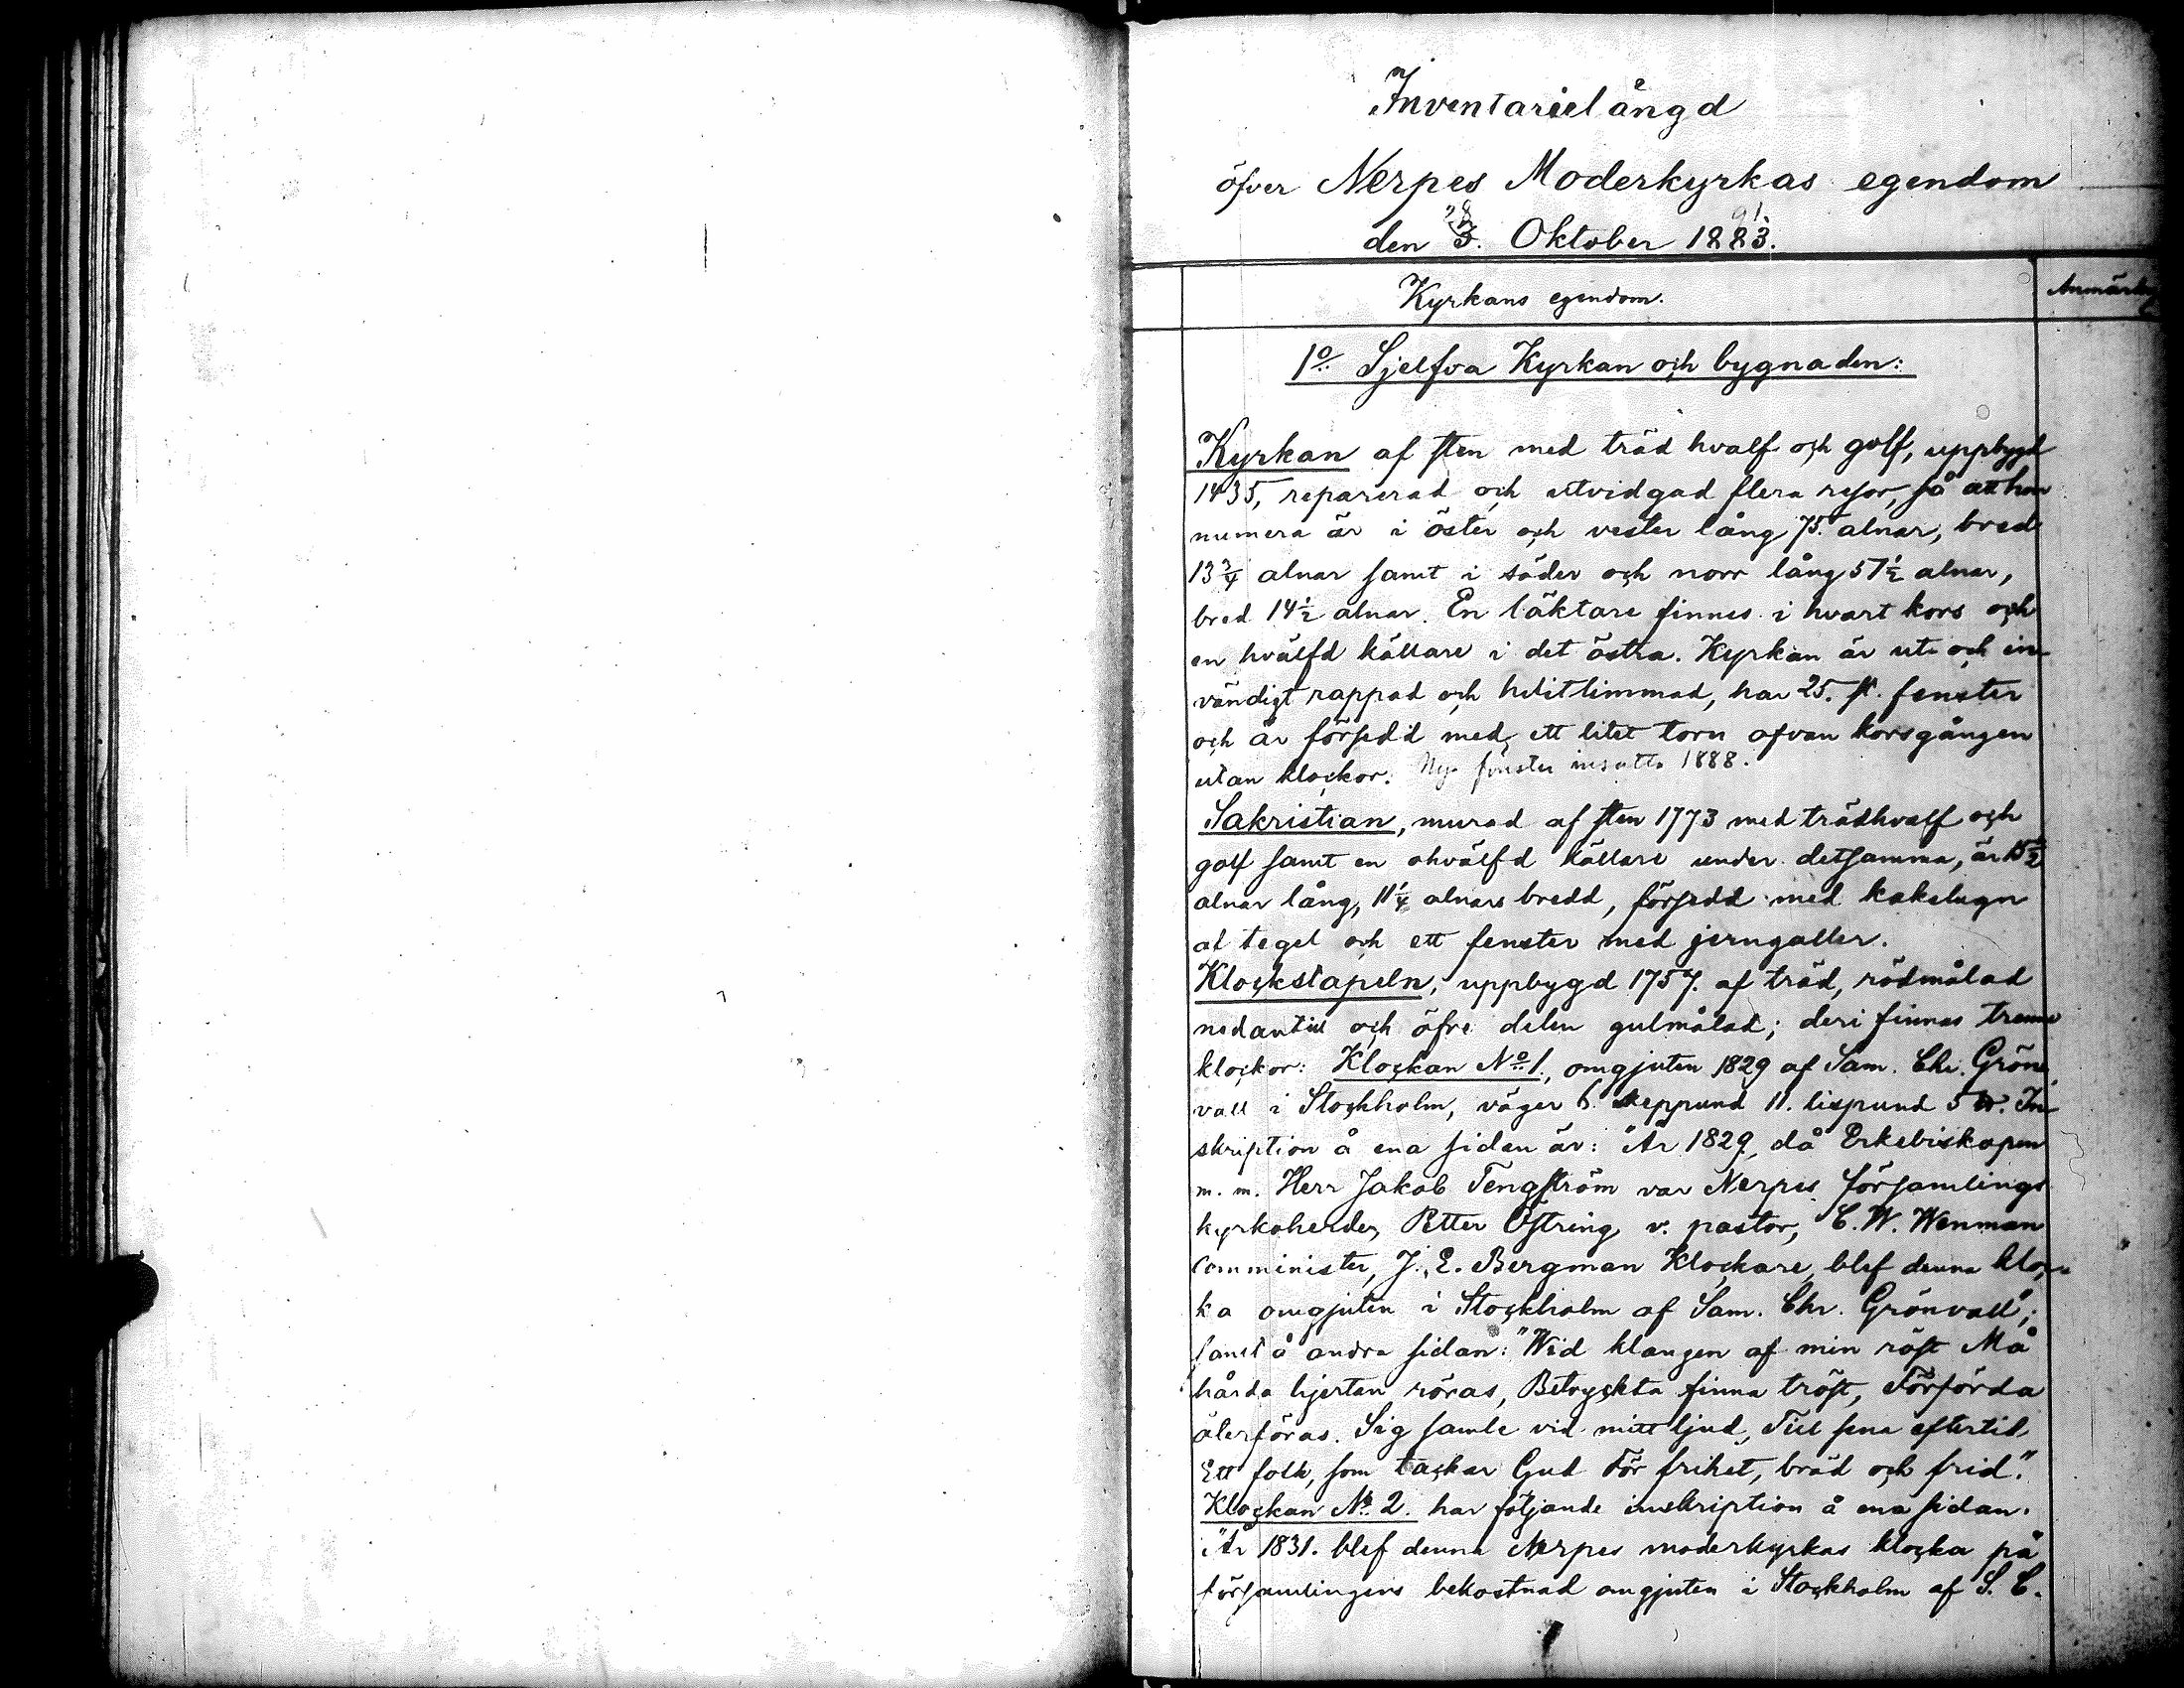 Inventarielängd
öfver Nerpes Moderkyrkas egendom
den 3. Oktober 1883.
Kyrkans egendom.
1o Sjelfva Kyrkan och bygnaden:
Kyrkan af sten med träd hvalf och golf, uppbygd
1435, reparerad och utvidgad flera resor, så att hon
numera är i öster och vester lång 75. alnar, bred
13 3/4 alnar samt i söder och norr lång 57 1/2 alnar,
bred 14 1/2 alnar. En läktare finnes i hvart kors och
en hvälfd källare i det östra. Kyrkan är ut- och in-
vändigt rappad och hvitlimmad, har 25. st. fenster
och är försedd med ett litet torn ofvan korsgången
utan klockor. Nya fönster insatta 1888.
Sakristian, murad af sten 1773 med trädhvalf och
golf samt en ohvälfd källare under detsamma, är 15 1/2
alnar lång, 11 1/4 alnars bredd, försedd med kakelugn
af tegel och ett fenster med jerngaller.
Klockstapeln, uppbygd 1757. af träd, rödmålad
nedantill och öfre delen gulmålad; deri finnas trenne
klockor: Klockan No 1., omgjuten 1829 af Sam. Chr. Grön-
vall i Stockholm, väger 6. skeppund 11. lispund 5 In-
skription å ena sidan är: "År 1829, då Erkebiskopen
m. m. Herr Jakob Tengström var Nerpes församlings
kyrkoherde, Petter Östring v. pastor, C. W. Wenman
Comminister, J. E. Bergman Klockare, blef denna kloc-
ka omgjuten i Stockholm af Sam. Chr. Grönvall";
samt å andra sidan: "Wid klangen af min röst Må
hårda hjertan röras, Betryckta finna tröst, Förförda
återföras. Sig samle vid mitt ljud, Till sena eftertid
Ett folk, som tackar Gud För frihet, bröd och frid."
Klockan No 2. har följande inskription å ena sidan:
"År 1831. blef denna Nerpes moderkyrkas klocka på
församlingens bekostnad omgjuten i Stockholm af S. C.